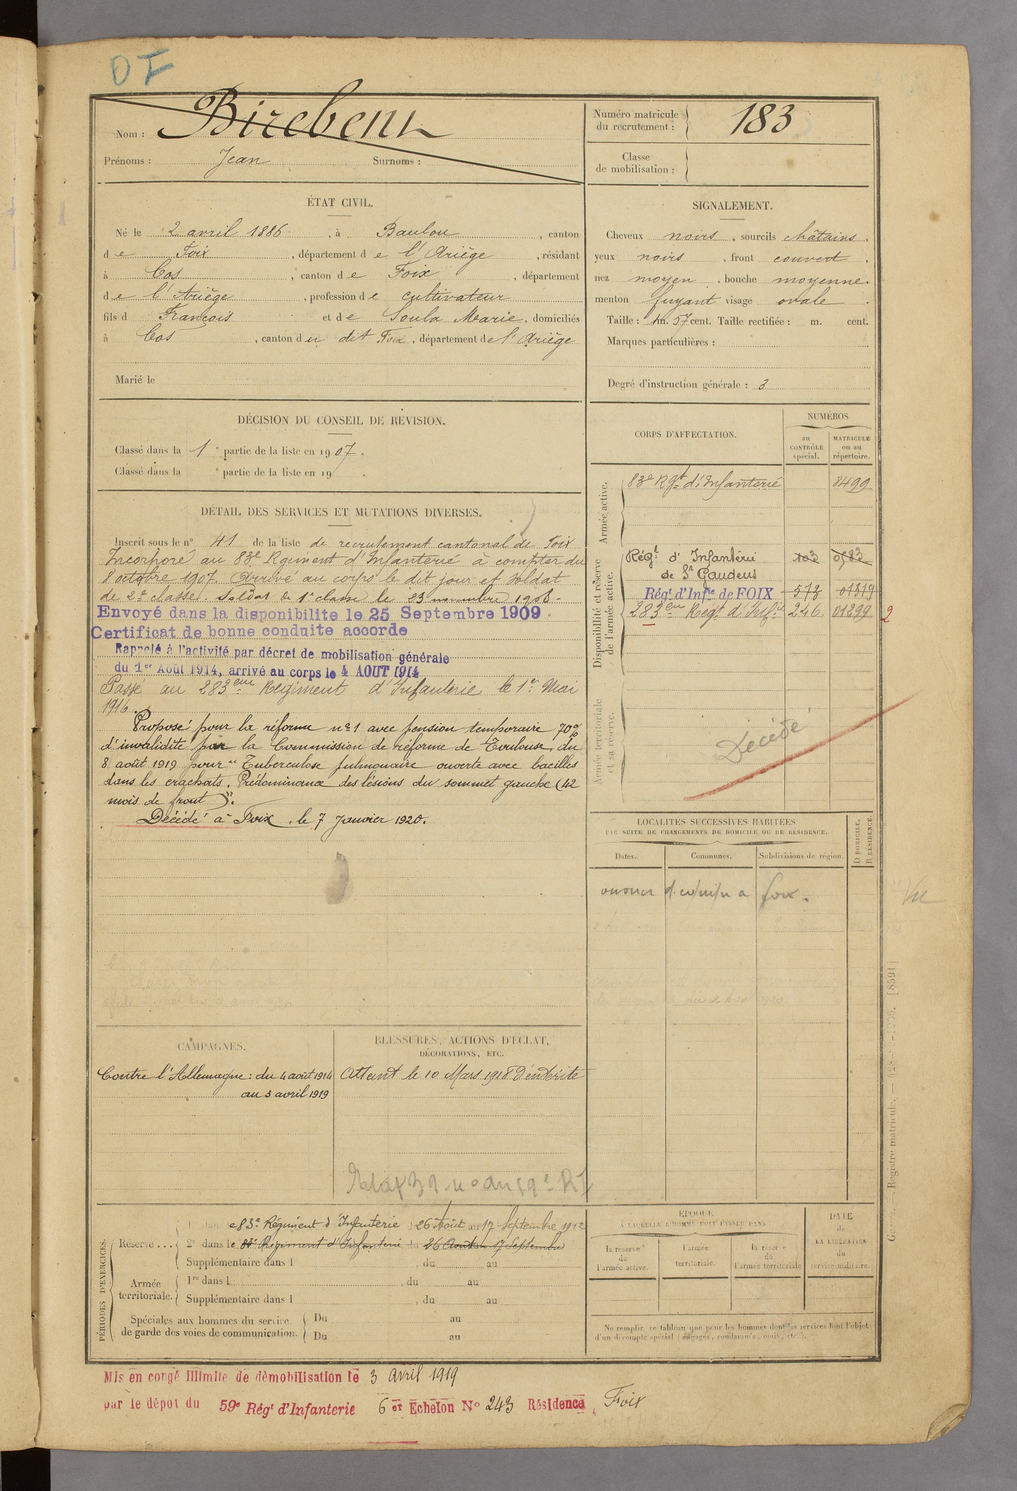 DF
Nom : Birebent
Prénoms : Jean Surnoms :
Numéro matricule du recrutement : 183
Classe de mobilisation :
ÉTAT CIVIL.
Né le 2 avril 1886, à Baulou, canton
de Foix, département de l'Ariège, résidant
à Cos, canton de Foix, département
de l'Ariège, profession de cultivateur
fils d François et de Soula Marie, domiciliés
à Cos, canton du dit Foix, département de l'Ariège
Marié le
SIGNALEMENT.
Cheveux noirs, sourcils châtains,
yeux noirs, front couvert,
nez moyen, bouche moyenne,
menton fuyant visage ovale.
Taille : 1m. 57 cent. Taille rectifiée : m. cent.
Marques particulières :
Degré d'instruction générale : 3
DÉCISION DU CONSEIL DE RÉVISION.
Classé dans la 1e partie de la liste en 1907.
Classé dans la e partie de la liste en 19 .
DÉTAIL DES SERVICES ET MUTATIONS DIVERSES.
Inscrit sous le n° 41 de la liste de recrutement cantonal de Foix
Incorporé au 83e Régiment d'Infanterie à compter du
8 octobre 1907. Arrivé au corps le dit jour et soldat
de 2e classe. Soldat de 1e classe le 23 novembre 1908.
Envoyé dans la disponibilite le 25 Septembre 1909.
Certificat de bonne conduite accorde
Rappelé à l'activité par décret de mobilisation générale
du 1er Août 1914, arrivé au corps le 4 AOUT 1914
Passé au 283eme Régiment d'Infanterie le 1er Mai
1916.
Proposé pour la réforme n°1 avec pension temporaire 70%
d'invalidité par la Commission de réforme de Toulouse, du
8 août 1919 pour "Tuberculose pulmonaire ouverte avec bacilles
dans les crachats. Prédominance des lésions du sommet gauche (42
mois de front)".
Décédé à Foix, le 7 Janvier 1920.
CORPS D'AFFECTATION.
NUMÉROS
au CONTRÔLE spécial.
MATRICULE ou au répertoire.
Armée active.
83e Rgt d'Infanterie 8499
Disponibilité et réserve de l'armée active.
Régt d'Infanterie de St Gaudens 103
Régt d'Infie de FOIX 578 01819
283eme Régt d'Infie 246 01899 2
Armée territoriale et sa réserve.
Décédé
LOCALITÉS SUCCESSIVES HABITÉES
PAR SUITE DE CHANGEMENTS DE DOMICILE OU DE RÉSIDENCE.
Dates. Communes. Subdivisions de région. D. DOMICILE. R. RÉSIDENCE.
foix.
Vu
CAMPAGNES.
Contre l'Allemagne : du 4 août 1914
au 3 avril 1919
BLESSURES, ACTIONS D'ÉCLAT,
DÉCORATIONS, ETC.
Atteint le 10 Mars 1918 d'entérite
PÉRIODES D'EXERCICES.
Réserve... e 83e Régiment d'Infanterie 26 Août au 17 Septembre 1912
2e dans le 83e Régiment d'Infanterie du 26 Août au 17 Septembre
Supplémentaire dans l , du au
Armée territoriale. 1re dans l , du au
Supplémentaire dans l , du au
Spéciales aux hommes du service de garde des voies de communication. Du au
Du au
ÉPOQUE
À LAQUELLE L'HOMME DOIT PASSER DANS
la réserve de l'armée active.
l'armée territoriale.
la réserve de l'armée territoriale
DATE de LA LIBÉRATION du service militaire.
Ne remplir ce tableau que pour les hommes dont les services font l'objet
d'un décompte spécial (engagés, condamnés, omis, etc.).
Mis en congé illimité de démobilisation le 3 avril 1919
par le dépot du 59e Régt d'Infanterie 6 et Echelon N° 243 Résidence, Foix